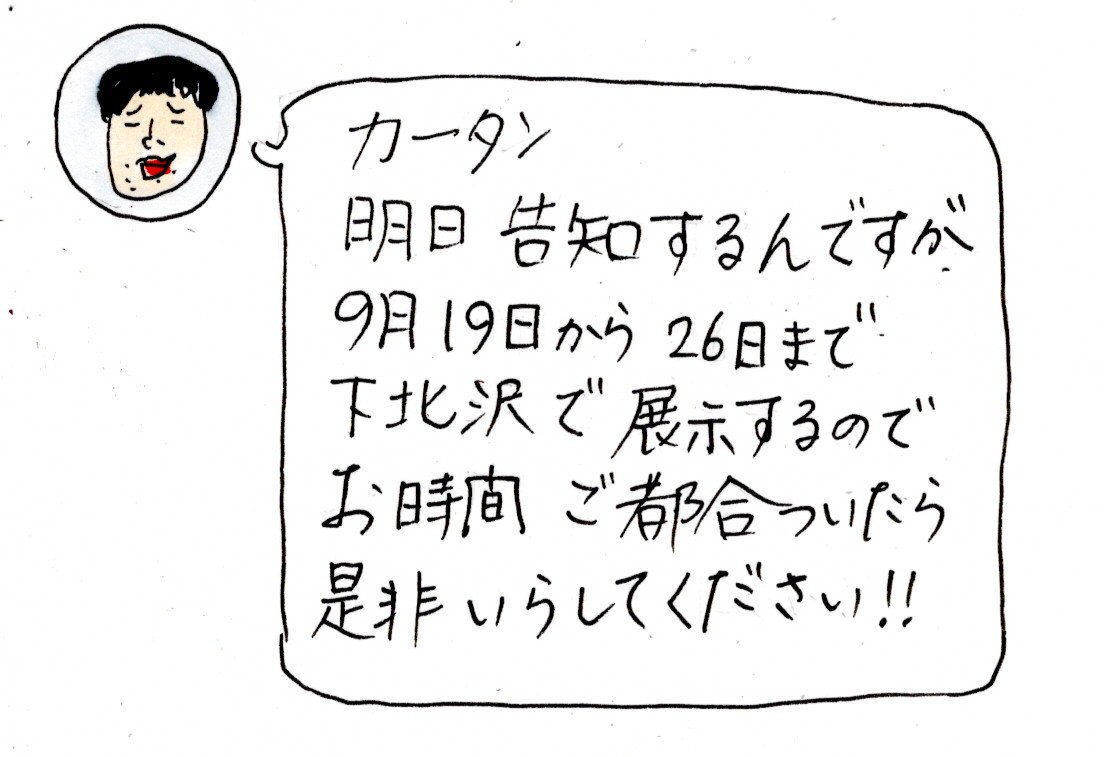 カータン
明日 告知するんですが
9月19日から 26日まで
下北沢で 展示するので
お時間 ご都合ついたら
是非 いらしてください!!